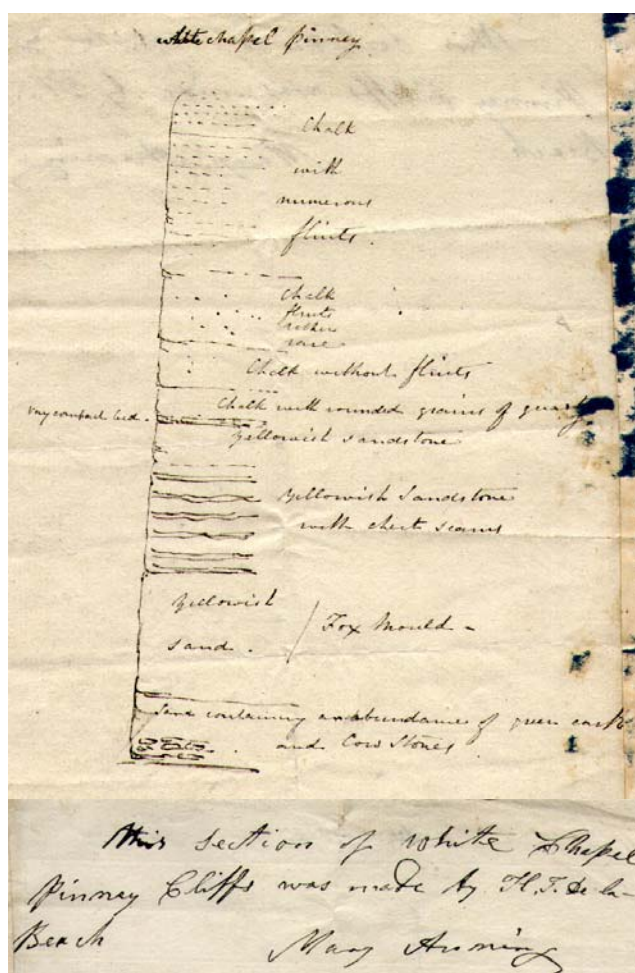 white chapel pinney
Chalk
with
numerous
flints.
Chalk
flints
rather
rare
Chalk without flints
very compact bed.
Chalk with rounded grains of quartz
Yellowish sandstone
Yellowish Sandstone
with chert seams
Yellowish
sand.
Fox Mould -
Sand containing an abundance of green earth
and Cow Stones.
This section of White Chapel
Pinney Cliffs was made by H.T. De la-
Beach
Mary Anning